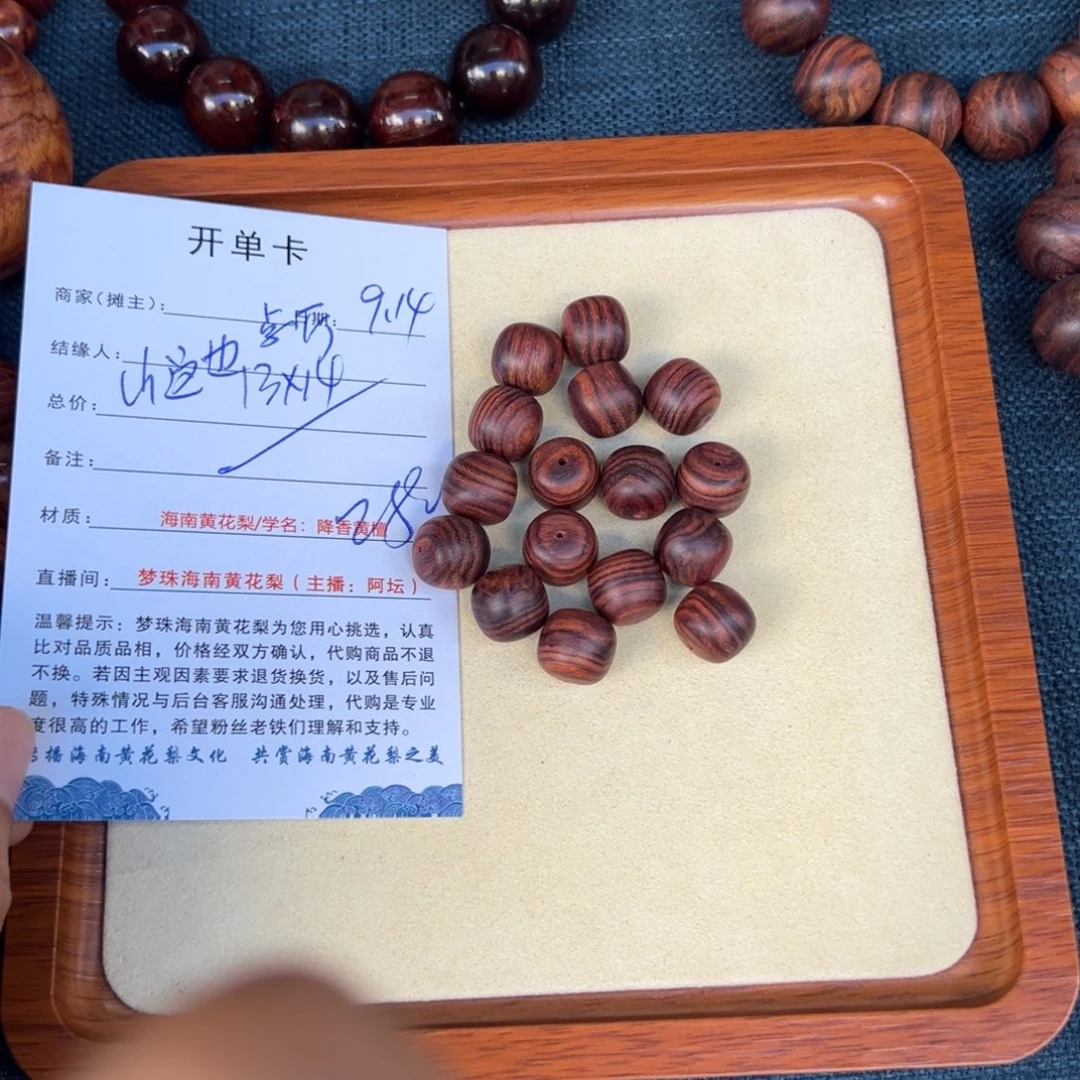 开单卡
商家(摊主):
日期: 9.14
结缘人:
13x14
总价:
备注:
材质: 海南黄花梨/学名: 降香黄檀
直播间: 梦珠海南黄花梨 ( 主播: 阿坛 )
温馨提示: 梦珠海南黄花梨为您用心挑选, 认真
比对品质品相, 价格经双方确认, 代购商品不退
不换。若因主观因素要求退货换货, 以及售后问
题, 特殊情况与后台客服沟通处理, 代购是专业
度很高的工作, 希望粉丝老铁们理解和支持。
播海南黄花梨文化 共赏海南黄花梨之美